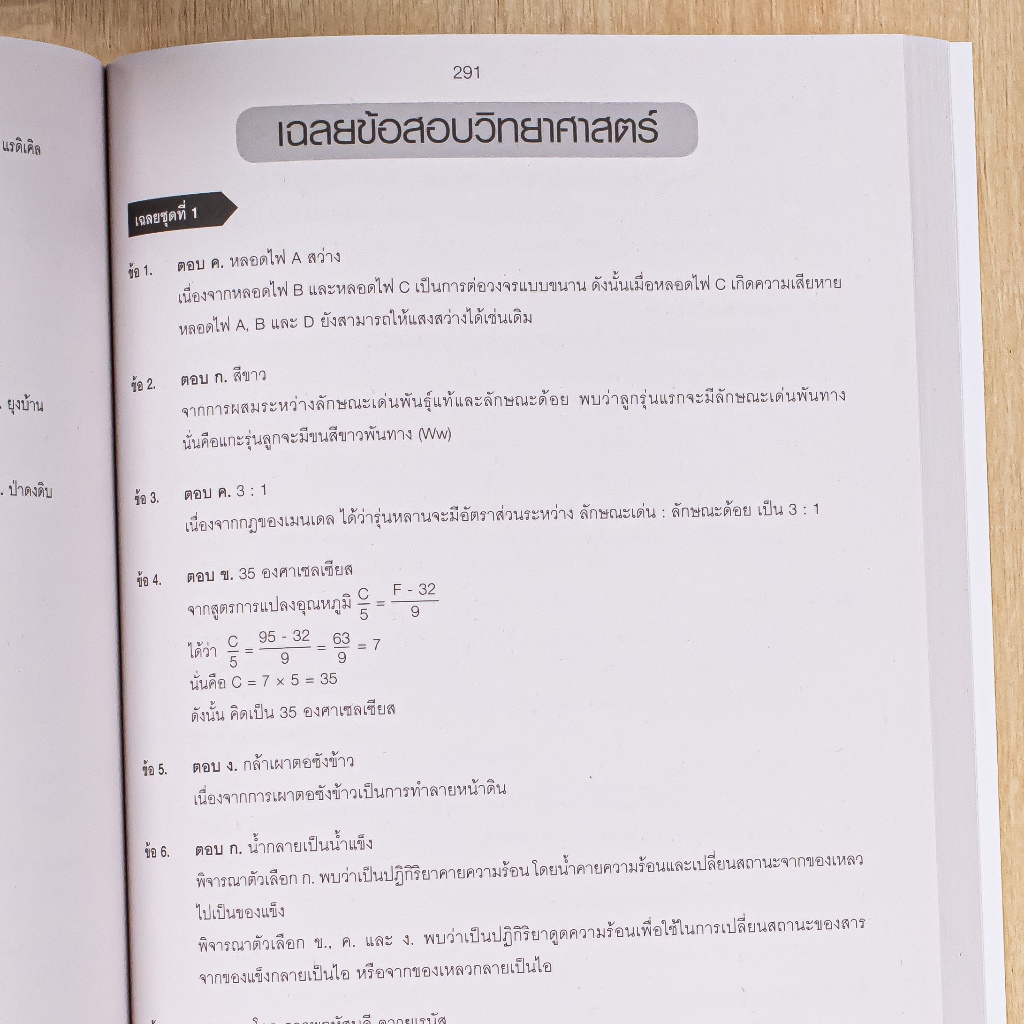 แรดิเคิล
ยุงบ้าน
ป่าดงดิบ
291
เฉลยข้อสอบวิทยาศาสตร์
เฉลยชุดที่ 1
ข้อ 1. ตอบ ค. หลอดไฟ A สว่าง
เนื่องจากหลอดไฟ B และหลอดไฟ C เป็นการต่อวงจรแบบขนาน ดังนั้นเมื่อหลอดไฟ C เกิดความเสียหาย
หลอดไฟ A, B และ D ยังสามารถให้แสงสว่างได้เช่นเดิม
ข้อ 2. ตอบ ก. สีขาว
จากการผสมระหว่างลักษณะเด่นพันธุ์แท้และลักษณะด้อย พบว่าลูกรุ่นแรกจะมีลักษณะเด่นพันทาง
นั่นคือแกะรุ่นลูกจะมีขนสีขาวพันทาง (Ww)
ข้อ 3. ตอบ ค. 3 : 1
เนื่องจากกฎของเมนเดล ได้ว่ารุ่นหลานจะมีอัตราส่วนระหว่าง ลักษณะเด่น : ลักษณะด้อย เป็น 3 : 1
ข้อ 4. ตอบ ข. 35 องศาเซลเซียส
จากสูตรการแปลงอุณหภูมิ C/5 = F - 32/9
ได้ว่า C/5 = 95 - 32/9 = 63/9 = 7
นั่นคือ C = 7 × 5 = 35
ดังนั้น คิดเป็น 35 องศาเซลเซียส
ข้อ 5. ตอบ ง. กล้าเผาตอซังข้าว
เนื่องจากการเผาตอซังข้าวเป็นการทำลายหน้าดิน
ข้อ 6. ตอบ ก. น้ำกลายเป็นน้ำแข็ง
พิจารณาตัวเลือก ก. พบว่าเป็นปฏิกิริยาคายความร้อน โดยน้ำคายความร้อนและเปลี่ยนสถานะจากของเหลว
ไปเป็นของแข็ง
พิจารณาตัวเลือก ข., ค. และ ง. พบว่าเป็นปฏิกิริยาดูดความร้อนเพื่อใช้ในการเปลี่ยนสถานะของสาร
จากของแข็งกลายเป็นไอ หรือจากของเหลวกลายเป็นไอ